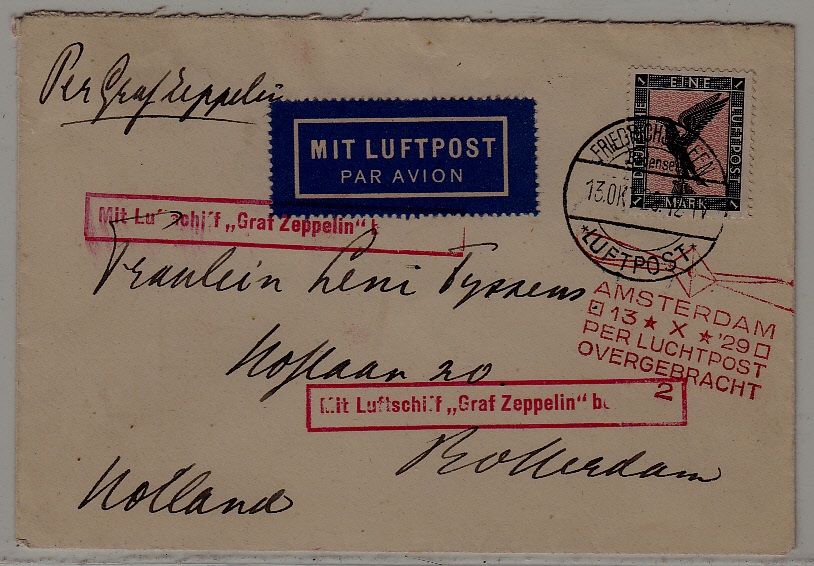 Per Graf Zeppelin
MIT LUFTPOST
PAR AVION
1 EINE 1
LUFTPOST
1 MARK 1
FRIEDRICHSHAFEN
13.OKT
*LUFTPOST*
Mit Luftschiff „Graf Zeppelin“ b
Fräulein Leni Tyssens
AMSTERDAM
13 * X * '29
PER LUCHTPOST
OVERGEBRACHT
2
Hoflaan 20.
Mit Luftschiff „Graf Zeppelin“ be
Rotterdam
Holland